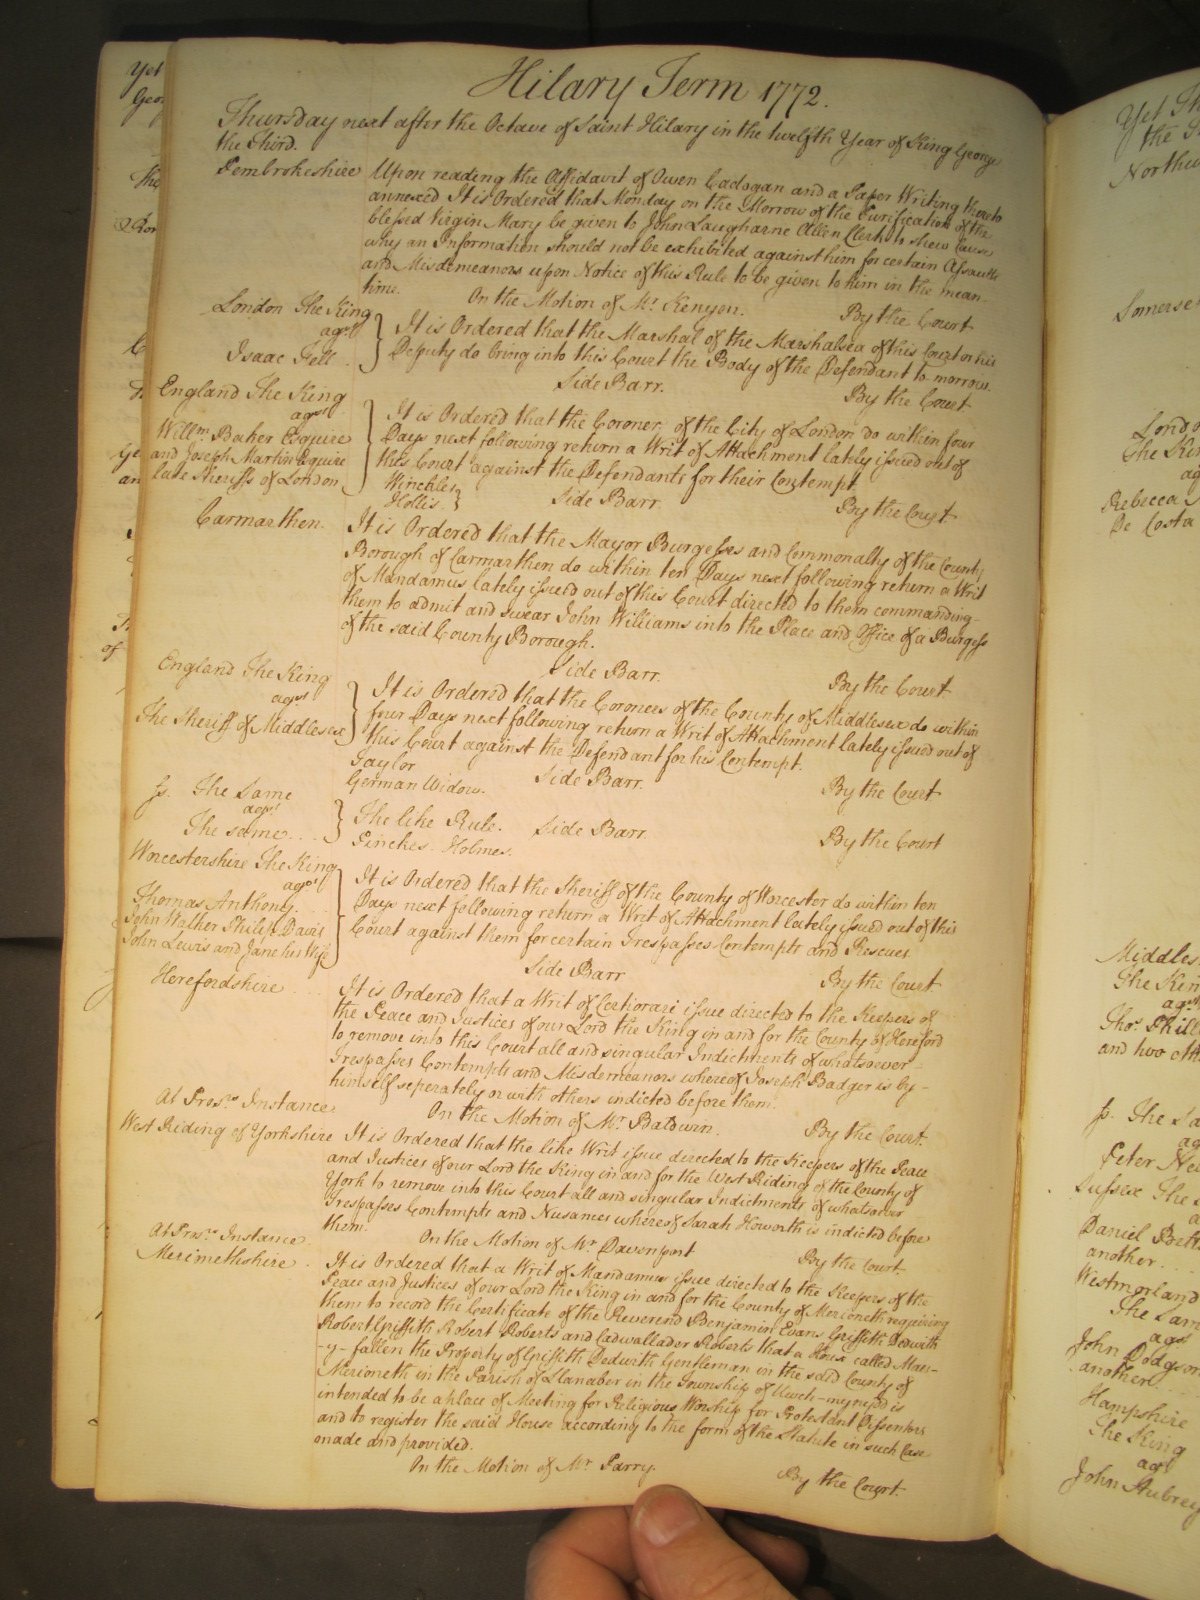 Hilary Term 1772.
Thursday next after the Octave of Saint Hilary in the twelfth Year of King George
the Third.
Pembrokeshire
Upon reading the Affidavit of Owen Cadogan and a Paper Writing thereto
annexed It is Ordered that Monday on the Morrow of the Purification of the
blessed Virgin Mary be given to John Laugharne Allen Clerk to shew Cause
why an Information should not be exhibited against him for certain Assaults
and Misdemeanors upon Notice of this Rule to be given to him in the mean
time.
On the Motion of Mr. Kenyon. By the Court
London The King
agst
Isaac Fell
It is Ordered that the Marshal of the Marshalsea of this Court or his
Deputy do bring into this Court the Body of the Defendant to morrow.
Side Barr. By the Court
England The King
agst
Willm. Baker Esquire
and Joseph Martin Esquire
late Sheriffs of London
It is Ordered that the Coroner of the City of London do within four
Days next following return a Writ of Attachment lately issued out of
this Court against the Defendants for their Contempt
Winckles
Hollis. Side Barr. By the Court
Carmarthen.
It is Ordered that the Mayor Burgesses and Commonalty of the County
Borough of Carmarthen do within ten Days next following return a Writ
of Mandamus lately issued out of this Court directed to them commanding
them to admit and swear John Williams into the Place and Office of a Burgess
of the said County Borough.
Side Barr. By the Court
England The King
agst
The Sheriff of Middlesex
It is Ordered that the Coroners of the County of Middlesex do within
four Days next following return a Writ of Attachment lately issued out of
this Court against the Defendant for his Contempt.
Taylor
German Widow. Side Barr. By the Court
Js. The Same
agst
The same
The like Rule. Side Barr. By the Court
Pinckes. Holmes.
Worcestershire The King
agst
Thomas Anthony.
John Walker Philip Davis
John Lewis and Jane his Wife
It is Ordered that the Sheriff of the County of Worcester do within ten
Days next following return a Writ of Attachment lately issued out of this
Court against them for certain Trespasses Contempts and Rescues
Side Barr By the Court
Herefordshire
It is Ordered that a Writ of Certiorari issue directed to the Keepers of
the Peace and Justices of our Lord the King in and for the County of Hereford
to remove into this Court all and singular Indictments of whatsoever
Trespasses Contempts and Misdemeanors whereof Joseph Badger is by-
himself seperately or with others indicted before them.
At Pros.rs Instance On the Motion of Mr. Baldwin. By the Court.
West Riding of Yorkshire
It is Ordered that the like Writ issue directed to the Keepers of the Peace
and Justices of our Lord the King in and for the West Riding of the County of
York to remove into this Court all and singular Indictments of whatsoever
Trespasses Contempts and Nusances whereof Sarah Howorth is indicted before
them.
At Pros.rs Instance On the Motion of Mr. Davenport By the Court.
Merionethshire
It is Ordered that a Writ of Mandamus issue directed to the Keepers of the
Peace and Justices of our Lord the King in and for the County of Merioneth requiring
them to record the Certificate of the Reverend Benjamin Evans Griffith Dedwith
Robert Griffith Robert Roberts and Cadwallader Roberts that a House called Maes-
-y-fallen the Property of Griffith Dedwith Gentleman in the said County of
Merioneth in the Parish of Llanaber in the Township of Uwch-mynydd is
intended to be a place of Meeting for Religious Worship for Protestant Dissenters
and to register the said House according to the form of the Statute in such Case
made and provided.
On the Motion of Mr. Parry. By the Court.
Somerse
The Kin
Rebecca
De Costa
Middles
The Kin
agst
Thos. Phill
Peter New
Sussex The
Daniel Bett
another
Westmorland
agst
John Dodgson
another
Hampshire
The King
agst
John Aubrey